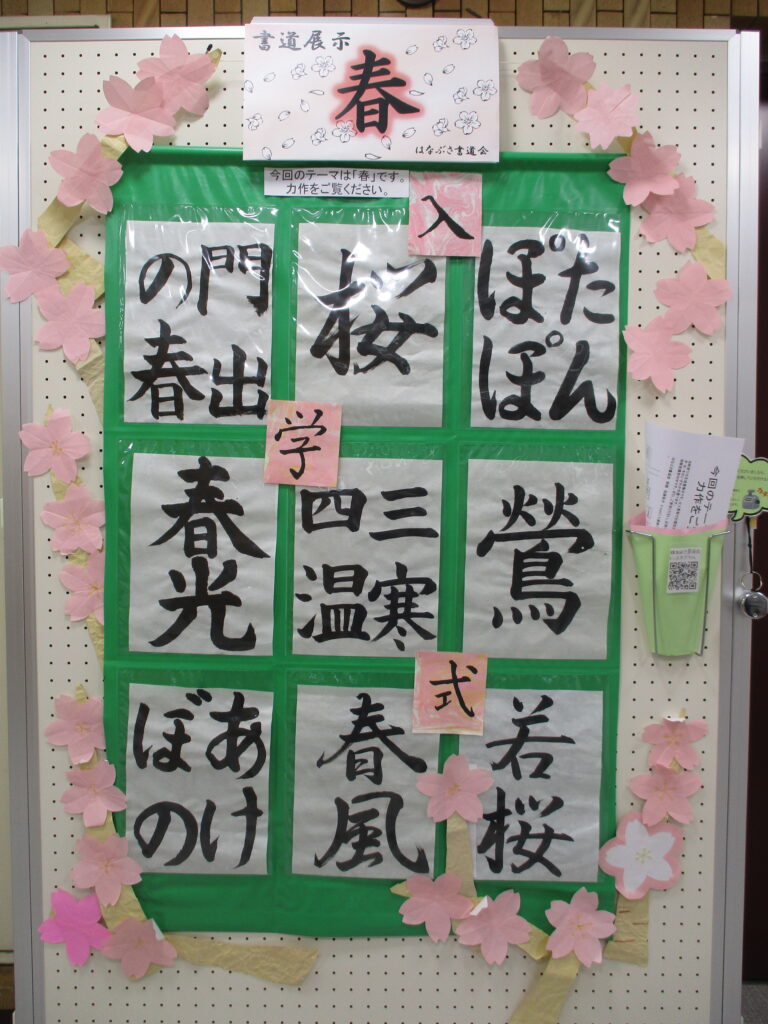 書道展示
春
はなぶさ書道会
今回のテーマは「春」です。
力作をご覧ください。
入
学
式
たん
ぽぽ
桜
門出
の春
鶯
三寒
四温
春光
若桜
春風
あけ
ぼの
今回のテー
力作をご